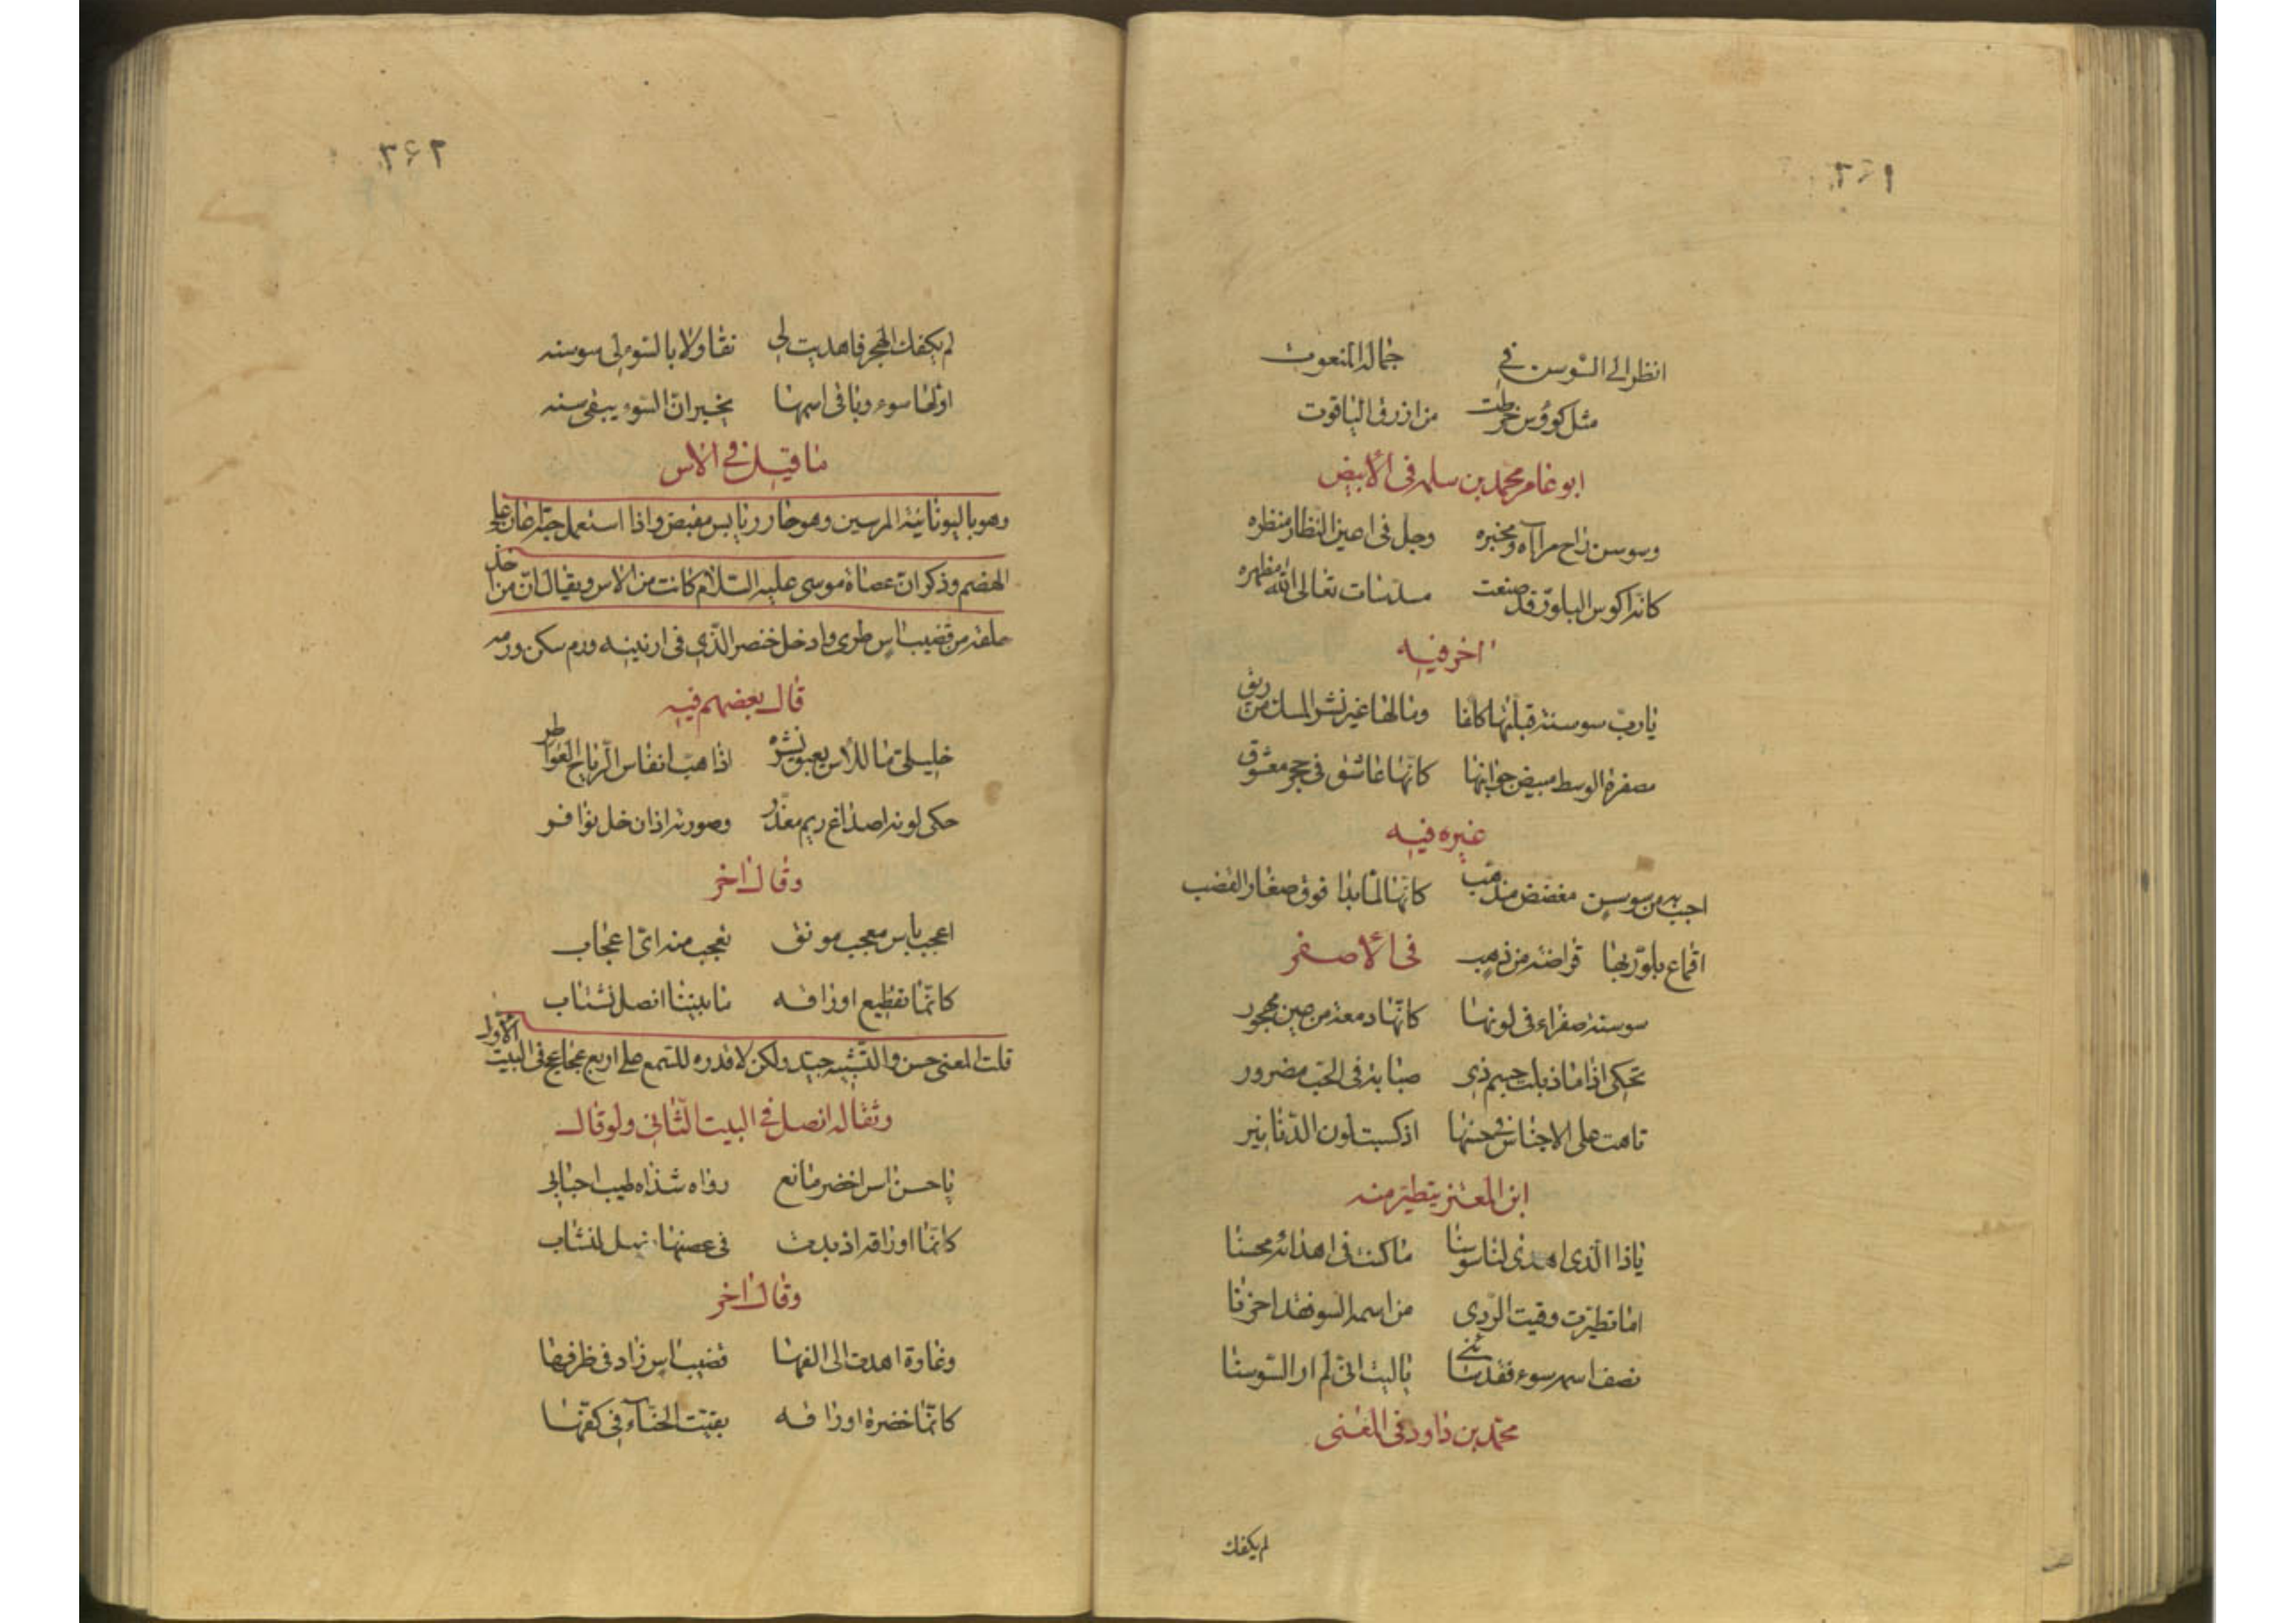 ٢٦١
انظر الى السّوسن في جماله المنعوت
مثل كووس خرطت من ازرق الياقوت
ابو عامر محمد بن سلمه في الأبيض
وسوسن راح مرآه ومخبره وجل في اعين النظار منظره
كانه اكوس البلور قد صنعت مسدسات تعالى الله مظهره
اخر فيه
يا ربّ سوسنة قبلتها كلفا ومالها غير نشر المسك من ريق
مصفرة الوسط مبيض جوانبها كانها عاشق في حجر معشوق
غيره فيه
احبب به من سوسن مفضض مذهب كانها لما بدا فوق صغار القضب
اقماع بلوّر بها قراضة من ذهب في الأصفر
سوسنة صفراء في لونها كانّها دمعة من عين مهجور
تحكى اذا ما ذبلت جسم ذي صبابة في الحبّ مضرور
تاهت على الاجناس في حسنها اذ كسبت لون الدّنانير
ابن المعتز يتطيّر منه
يا ذا الّذى اهدى لنا سوسنا ما كنت في اهدائه محسنا
اما تطيّرت وقيت الرّدى من اسمه السوء فقد احزنا
نصف اسمه سوء فقد ساءني يا ليت انّى لم ار السّوسنا
محمّد بن داود في المعنى
لم يكفك
٢٦٢
لم يكفك الهجر فاهديت لي تفاولا بالسّوء لى سوسنه
اولها سوء وباقى اسمها يخبر ان السّوء يبقى سنه
ما قيل في الاس
وهو باليونانية المرسين وهو حار يابس مقبض واذا استعمل حبّه اعان على
الهضم وذكر ان عصاة موسى عليه السّلام كانت من الاس ويقال ان من اخذ
حلقة من قضيب اس طرى وادخل خنصر الّذي في ارنبيه ورم سكن ورمه
قال بعضهم فيه
خليلى ما للاس يعبق نشره اذا هبّ انفاس الرّياح العواطر
حكى لونه اصداغ ريم معذّر وصورته اذان خل نوافر
وقال اخر
اعجب باس معجب مونق تعجب منه اىّ اعجاب
كانّما تقطيع اوراقه ما بيننا انصل نشّاب
قلت المعنى حسن والتّشبيه جيّد ولكن لا قدره للسّمع على اربع عجايع في البيت الاوّل
وثقاله انصل في البيت الثّاني ولو قال
يا حسن اس اخضر مانع رواه شذاه طيب احبابي
كانّما اوراقه اذ بدت في غصنها نصل لنشّاب
وقال اخر
وغادة اهدت الى الفها قضيب اس زاد في ظرفها
كانّما خضرة اوراقه بقيّت الحنّاء في كفّها